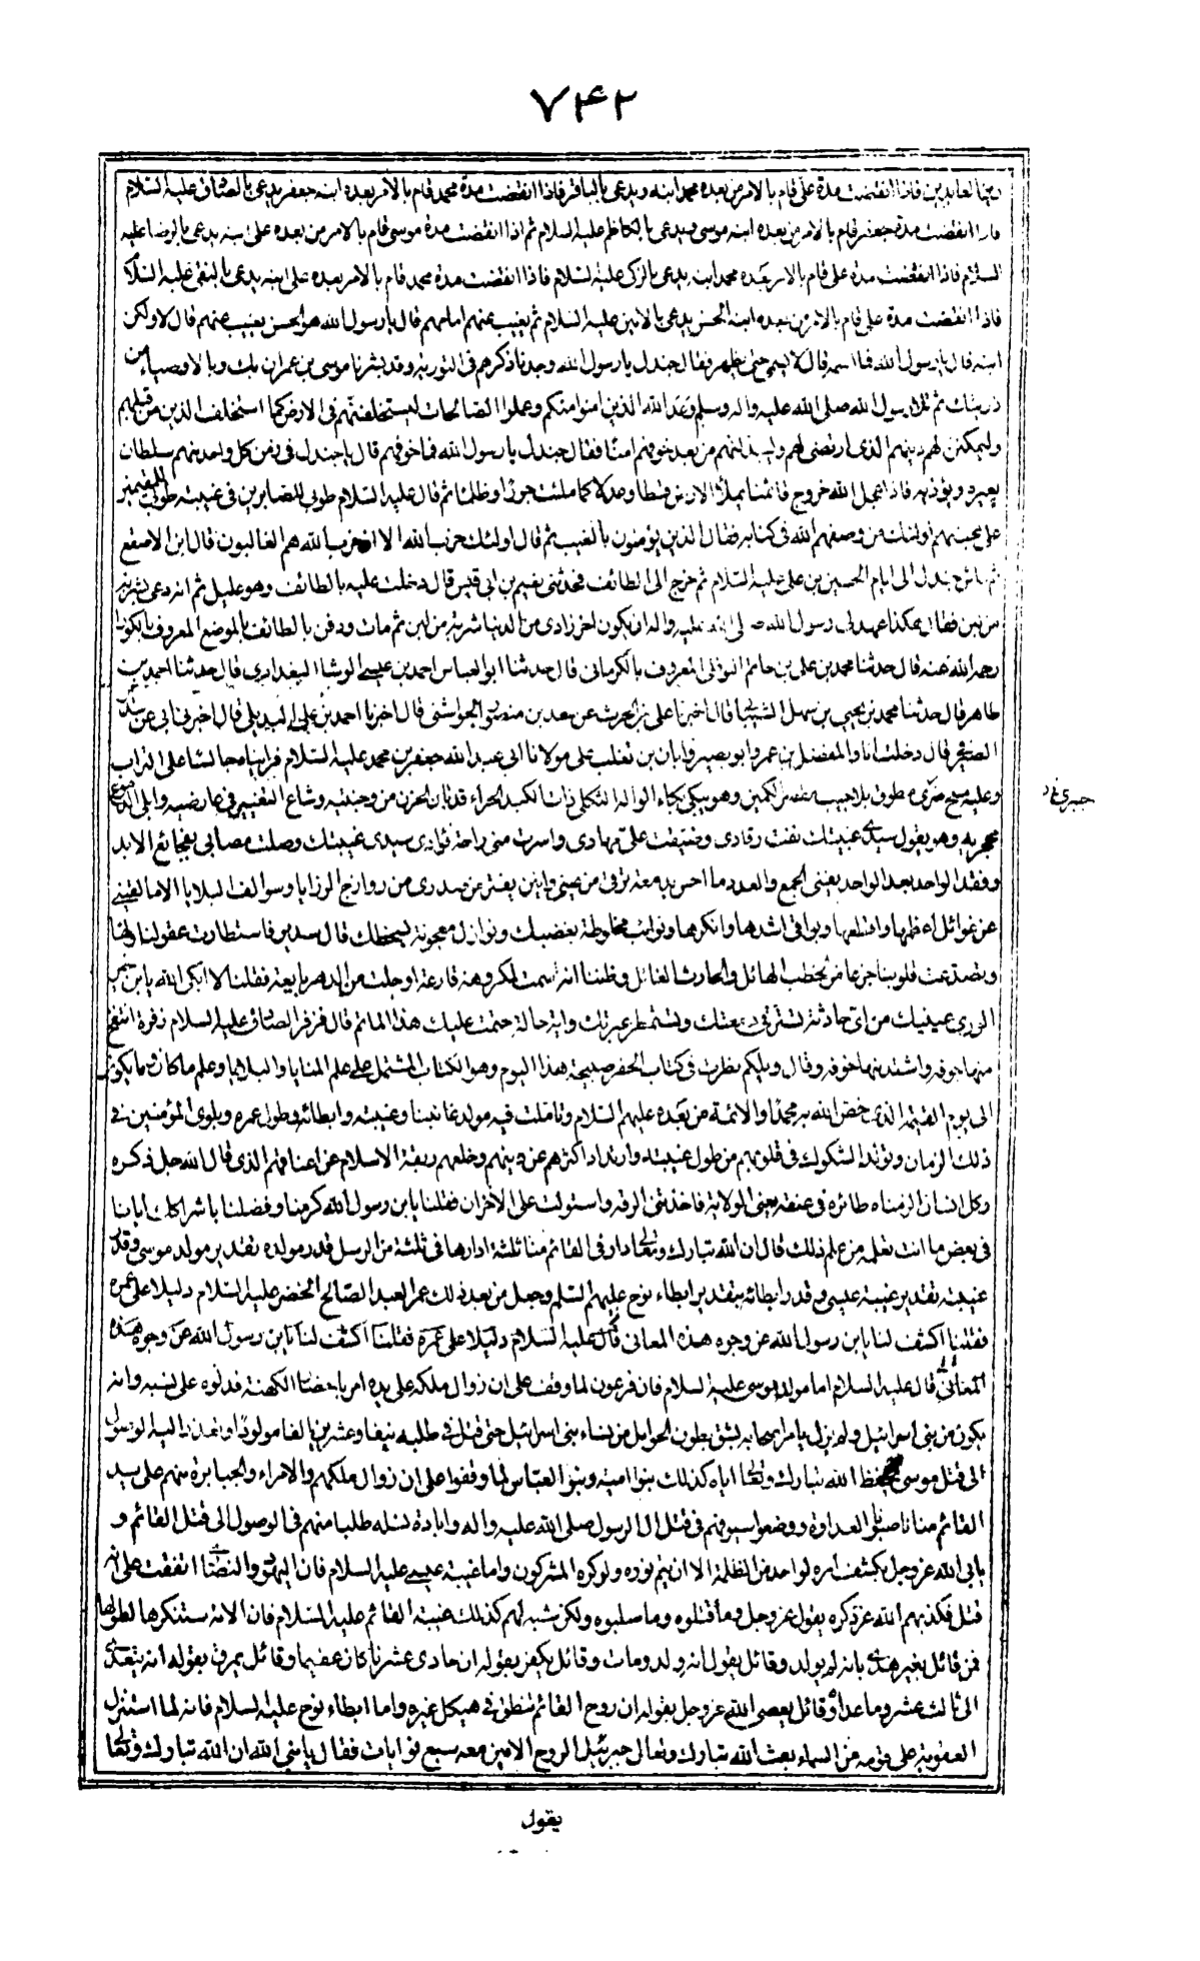 ٧٤٢
زين العابدين فاذا انقضت مدة علي قام بالامر من بعده محمد ابنه ويدعى بالباقر فاذا انقضت مدة محمد قام بالامر بعده ابنه جعفر يدعى بالصادق عليه السلام
فاذا انقضت مدة جعفر قام بالامر من بعده ابنه موسى ويدعى بالكاظم عليه السلام ثم اذا انقضت مدة موسى قام بالامر من بعده على ابنه يدعى بالرضا عليه
السلام فاذا انقضت مدة على قام بالامر بعده محمد ابنه يدعى بالزكى عليه السلام فاذا انقضت مدة محمد قام بالامر بعده على ابنه يدعى بالنقى عليه السلام
فاذا انقضت مدة على قام بالامر من بعده ابنه الحسن يدعى بالامين عليه السلام ثم يغيب عنهم امامهم قال يا رسول الله هو الحسن يغيب عنهم قال لا ولكن
ابنه قال يا رسول الله فما اسمه قال لا يسمى حتى يظهر فقال جندل يا رسول الله وجدنا ذكرهم فى التورية وقد بشرنا موسى بن عمران بك وبالاوصياء من
ذريتك ثم تلا رسول الله صلى الله عليه واله وسلم وعد الله الذين امنوا منكم وعملوا الصالحات ليستخلفنهم فى الارض كما استخلف الذين من قبلهم
وليمكنن لهم دينهم الذى ارتضى لهم وليبدلنهم من بعد خوفهم امنا فقال جندل يا رسول الله فما خوفهم قال يا جندل فى زمن كل واحد منهم سلطان
يعيره ويؤذيه فاذا عجل الله خروج قائمنا يملأ الارض قسطا وعدلا كما ملئت جورا وظلما ثم قال عليه السلام طوبى للصابرين فى غيبته طوبى للمقيمين
على محبتهم اولئك من وصفهم الله فى كتابه فقال الذين يؤمنون بالغيب ثم قال اولئك حزب الله الا ان حزب الله هم الغالبون قال ابن الاصقع
ثم عاش جندل الى ايام الحسين بن على عليه السلام ثم خرج الى الطائف فحدثنى نعيم بن ابى قيس قال دخلت عليه بالطائف وهو عليل ثم انه دعى بشربة
من لبن فقال هكذا عهد لى رسول الله صلى الله عليه واله ان يكون اخر زادى من الدنيا شربة من لبن ثم مات ودفن بالطائف بالموضع المعروف بالكوزا
رحمه الله عنه قال حدثنا محمد بن على بن حاتم النوفلى المعروف بالكرمانى قال حدثنا ابو العباس احمد بن عيسى الوشا البغدادى قال حدثنا احمد بن
طاهر قال حدثنا محمد بن يحيى بن سهل الشيبانى قال اخبرنا على بن الحرث عن سعد بن منصور الجواشنى قال اخبرنا احمد بن على البديلى قال اخبرنى ابى عن سدير
الصيرفى قال دخلت انا والمفضل بن عمر وابو بصير وابان بن تغلب على مولانا ابى عبد الله جعفر بن محمد عليه السلام فرايناه جالسا على التراب
وعليه مسح خيبرى مطوق بلا جيب مقصر الكمين وهو يبكى بكاء الواله الثكلى ذات الكبد الحراء قد نال الحزن من وجنتيه وشاع التغيير فى عارضيه وابلى الدموع
محجريه وهو يقول سيدى غيبتك نفت رقادى وضيقت على مهادى واسرت منى راحة فؤادى سيدى غيبتك وصلت مصابى بفجائع الابد
وفقد الواحد بعد الواحد يفنى الجمع والعدد فما احس بدمعة ترقى من عينى وانين يفتر من صدرى من روازح الرزايا وسوالف البلايا الا ما لقينى
عن غوائل اعظمها وافظعها وبواقى اشدها وانكرها ونوائب مخلوطة بغضبك ونوازل معجونة بسخطك قال سدير فاستطارت عقولنا ولها
وتصدعت قلوبنا جزعا من الخطب الهائل والحادث الغائل وظننا انه اسمت لمكروهة قارعة او حلت من الدهر بايقة فقلنا لا ابكى الله يا ابن خير
الورى عينيك من اى حادثة تستنزف دمعتك وتستمطر عبرتك واية حالة حتمت عليك هذا الماتم قال فزفر الصادق عليه السلام زفرة انتفخ
منها جوفه واشتد منها خوفه وقال ويلكم نظرت فى كتاب الجفر صبيحة هذا اليوم وهو الكتاب المشتمل على علم المنايا والبلايا وعلم ما كان وما يكون
الى يوم القيمة الذى خص الله به محمدا والائمة من بعده عليهم السلام وتاملت فيه مولد غائبنا وغيبته وابطائه وطول عمره وبلوى المؤمنين فى
ذلك الزمان وتولد الشكوك فى قلوبهم من طول غيبته وارتداد اكثرهم عن دينهم وخلعهم ربقة الاسلام عن اعناقهم الذى قال الله جل ذكره
وكل انسان الزمناه طائره فى عنقه يعنى الولاية فاخذتنى الرقة واستولت على الاحزان فقلنا يا ابن رسول الله كرمنا وفضلنا باشراكك ايانا
فى بعض ما انت تعلمه من علم ذلك قال ان الله تبارك وتعالى ادار فى القائم منا ثلثة ادارها فى ثلثة من الرسل قدر مولده تقدير مولد موسى وقدر
غيبته تقدير غيبة عيسى وقدر ابطائه بتقدير ابطاء نوح عليهم السلم وجعل من بعد ذلك عمر العبد الصالح الخضر عليه السلام دليلا على عمره
فقلنا اكشف لنا يا بن رسول الله عن وجوه هذه المعانى قال عليه السلام دليلا على عمره فقلنا اكشف لنا يا بن رسول الله عن وجوه هذه
المعانى قال عليه السلام اما مولد موسى عليه السلام فان فرعون لما وقف على ان زوال ملكه على يده امر باحضار الكهنة فدلوه على نسبه وانه
يكون من بنى اسرائيل ولم يزل يامر اصحابه بشق بطون الحوامل من نساء بنى اسرائيل حتى قتل فى طلبه نيفا وعشرين الفا مولودا وتعذر اليه الوصول
الى قتل موسى بحفظ الله تبارك وتعالى اياه كذلك بنو امية وبنو العباس لما وقفوا على ان زوال ملكهم والامراء والجبابرة منهم على يد
القائم منا ناصبونا العداوة ووضعوا سيوفهم فى قتل ال الرسول صلى الله عليه واله وابادة نسله طلبا منهم فى الوصول الى قتل القائم و
يابى الله عز وجل يكشف امره لواحد من الظلمة الا ان يتم نوره ولو كره المشركون واما غيبة عيسى عليه السلام فان اليهود والنصارى اتفقت على انه
قتل فكذبهم الله عز ذكره بقوله عز وجل وما قتلوه وما صلبوه ولكن شبه لهم كذلك غيبة القائم عليه السلام فان الامة ستنكرها لطولها
فمن قائل بغير هدى بانه لم يولد وقائل يقول انه ولد ومات وقائل يكفر بقوله ان حادى عشرنا كان عقيما وقائل يمرق بقوله انه يتعدى
الى ثالث عشر وما عدا وقائل يعصى الله عز وجل بقوله ان روح القائم تنطق فى هيكل غيره واما ابطاء نوح عليه السلام فانه لما استنزل
العقوبة على قومه من السماء بعث الله تبارك وتعالى جبرئيل الروح الامين معه سبع نوايات فقال يا نبى الله ان الله تبارك وتعالى
يقول